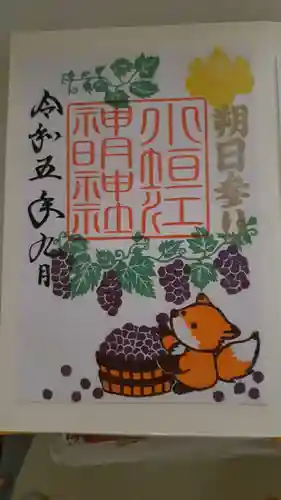 朔日参り
小垣江
神明神社
令和五年九月